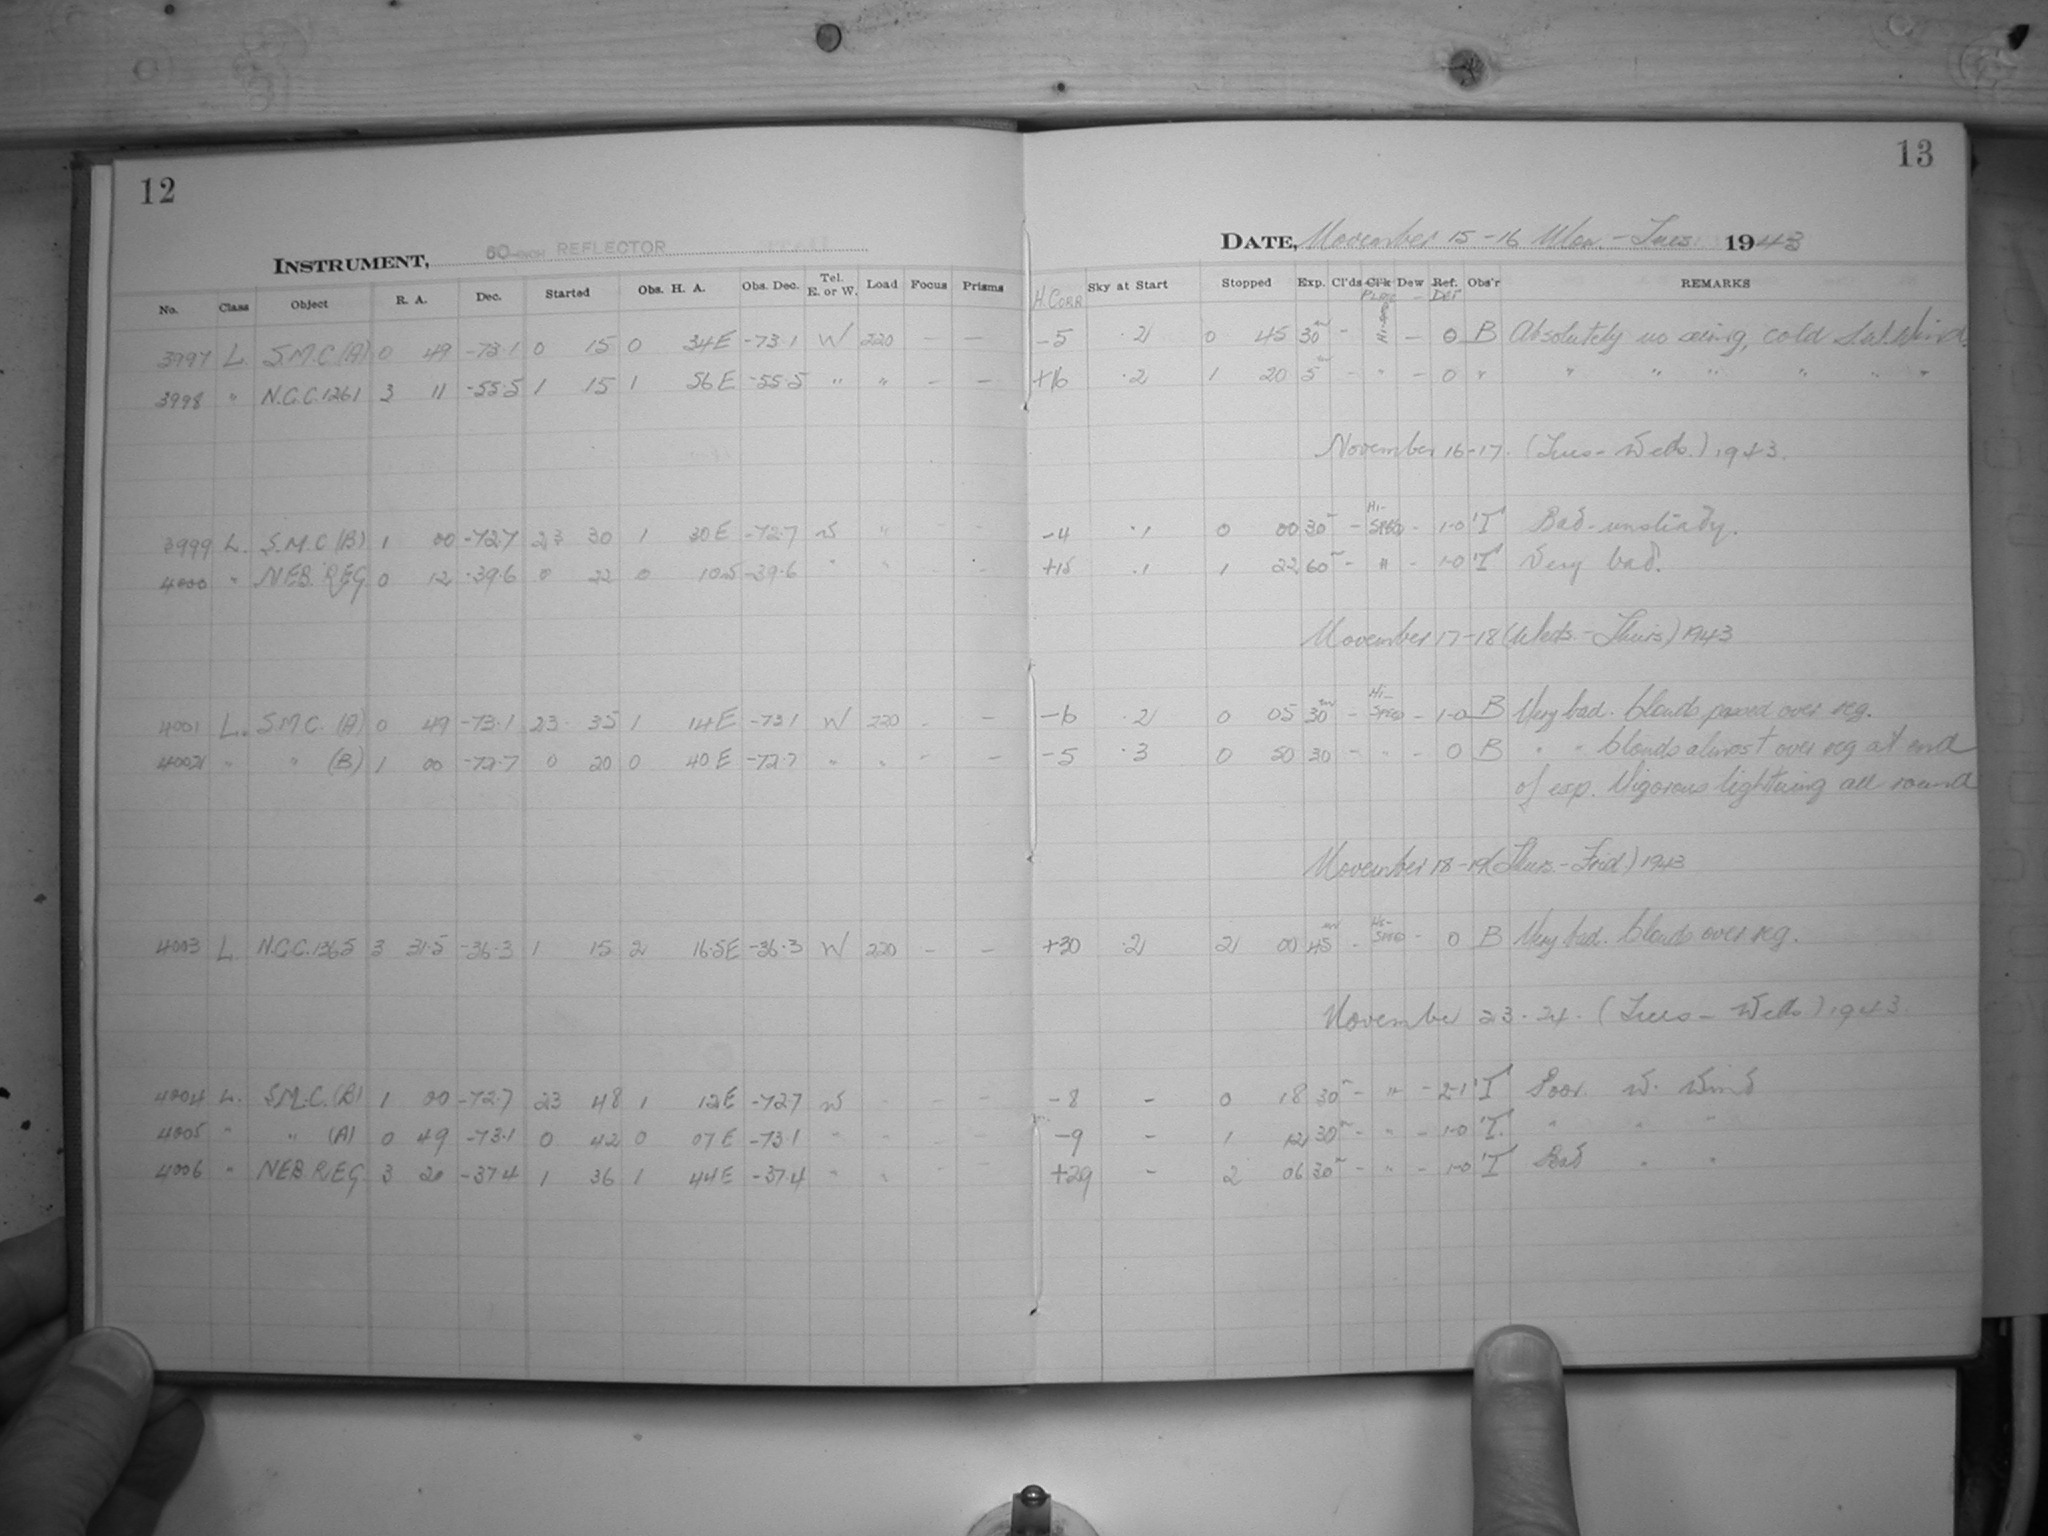 12
13
INSTRUMENT, 60-INCH REFLECTOR
DATE, November 15-16 Mon.-Tues. 1943
No. Class Object R. A. Dec. Started Obs. H. A. Obs. Dec. Tel. E. or W. Load Focus Prisms H. CORR Sky at Start Stopped Exp. Cl'ds Cl'k Dew Ref. Obs'r REMARKS
PLATE - DEF
3997 L. S.M.C.(A) 0 49 -73.1 0 15 0 34E -73.1 W 220 - - -5 .2 0 45 30m - Hi-Speed - 0 B Absolutely no seeing, cold S.W. Wind.
3998 " N.G.C.1261 3 11 -55.5 1 15 1 56E -55.5 " " - - +16 .2 1 20 5m - " - 0 " " " " " " "
November 16-17. (Tues-Weds.) 1943.
3999 L. S.M.C.(B) 1 00 -72.7 23 30 1 30E -72.7 W " - - -4 .1 0 00 30m - Hi-SPEED - 1-0 T Bad-unsteady.
4000 " NEB. REG. 0 12 -39.6 0 22 0 10W -39.6 " " - - +15 .1 1 22 60m - " - 1-0 T Very bad.
November 17-18 (Weds.-Thurs) 1943
4001 L. S.M.C. (A) 0 49 -73.1 23 35 1 14E -73.1 W 220 - - -6 .2 0 05 30m - Hi-SPEED - 1-0 B Very bad. Clouds passed over reg.
4002 " " (B) 1 00 -72.7 0 20 0 40E -72.7 " " - - -5 .3 0 50 30 - " - 0 B " " Clouds almost over reg at end
of exp. Vigorous lightning all round
November 18-19 (Thurs.-Frid) 1943
4003 L. N.G.C.1365 3 31.5 -36.3 1 15 2 16.5E -36.3 W 220 - - +30 .2 2 00 45m - Hi-SPEED - 0 B Very bad. Clouds over reg.
November 23-24. (Tues-Weds.) 1943.
4004 L. S.M.C.(B) 1 00 -72.7 23 48 1 12E -72.7 W - - - -8 - 0 18 30m - " - 2-1 T Poor. W. Wind
4005 " " (A) 0 49 -73.1 0 42 0 07E -73.1 " - - - -9 - 1 12 30m - " - 1-0 T. " " "
4006 " NEB REG 3 20 -37.4 1 36 1 44E -37.4 " " - - +29 - 2 06 30m - " - 1-0 T Bad " "